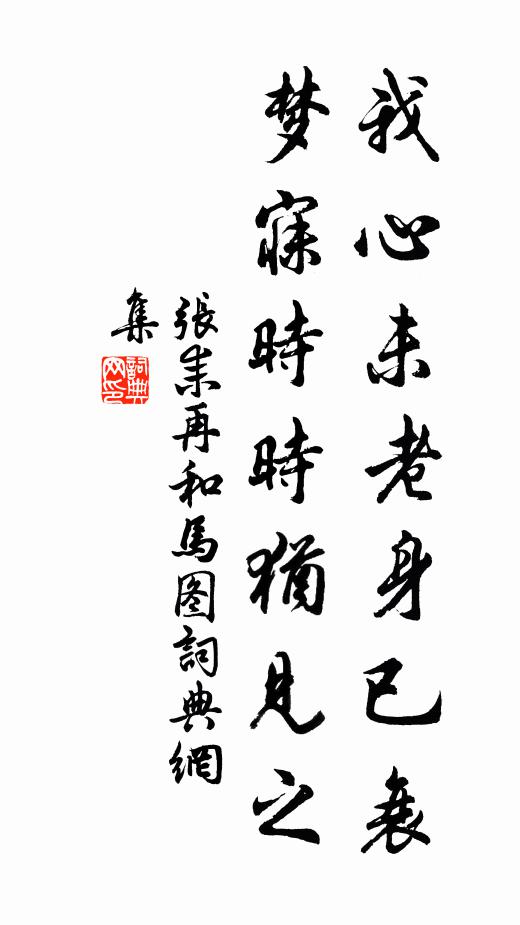 我心未老身已衰
梦寐時時猶見之
張耒再和馬图詞典網
集
詞典
网印